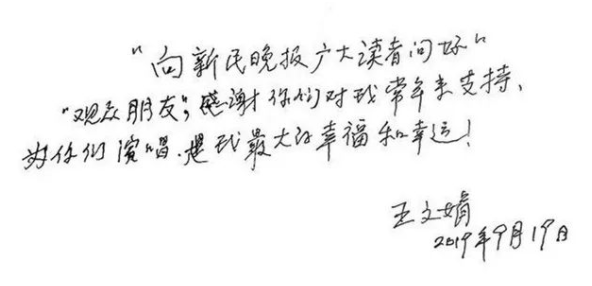 “向新民晚报广大读者问好”
“观众朋友”，感谢你们对我常年来支持、
为你们演唱.是我最大的幸福和幸运！
王文娟
2019年9月19日